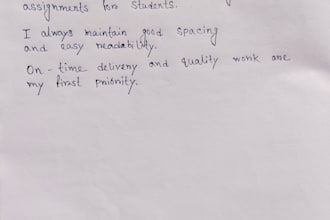 assignments for students.
I always maintain good spacing
and easy readability.
On-time delivery and quality work are
my first priority.